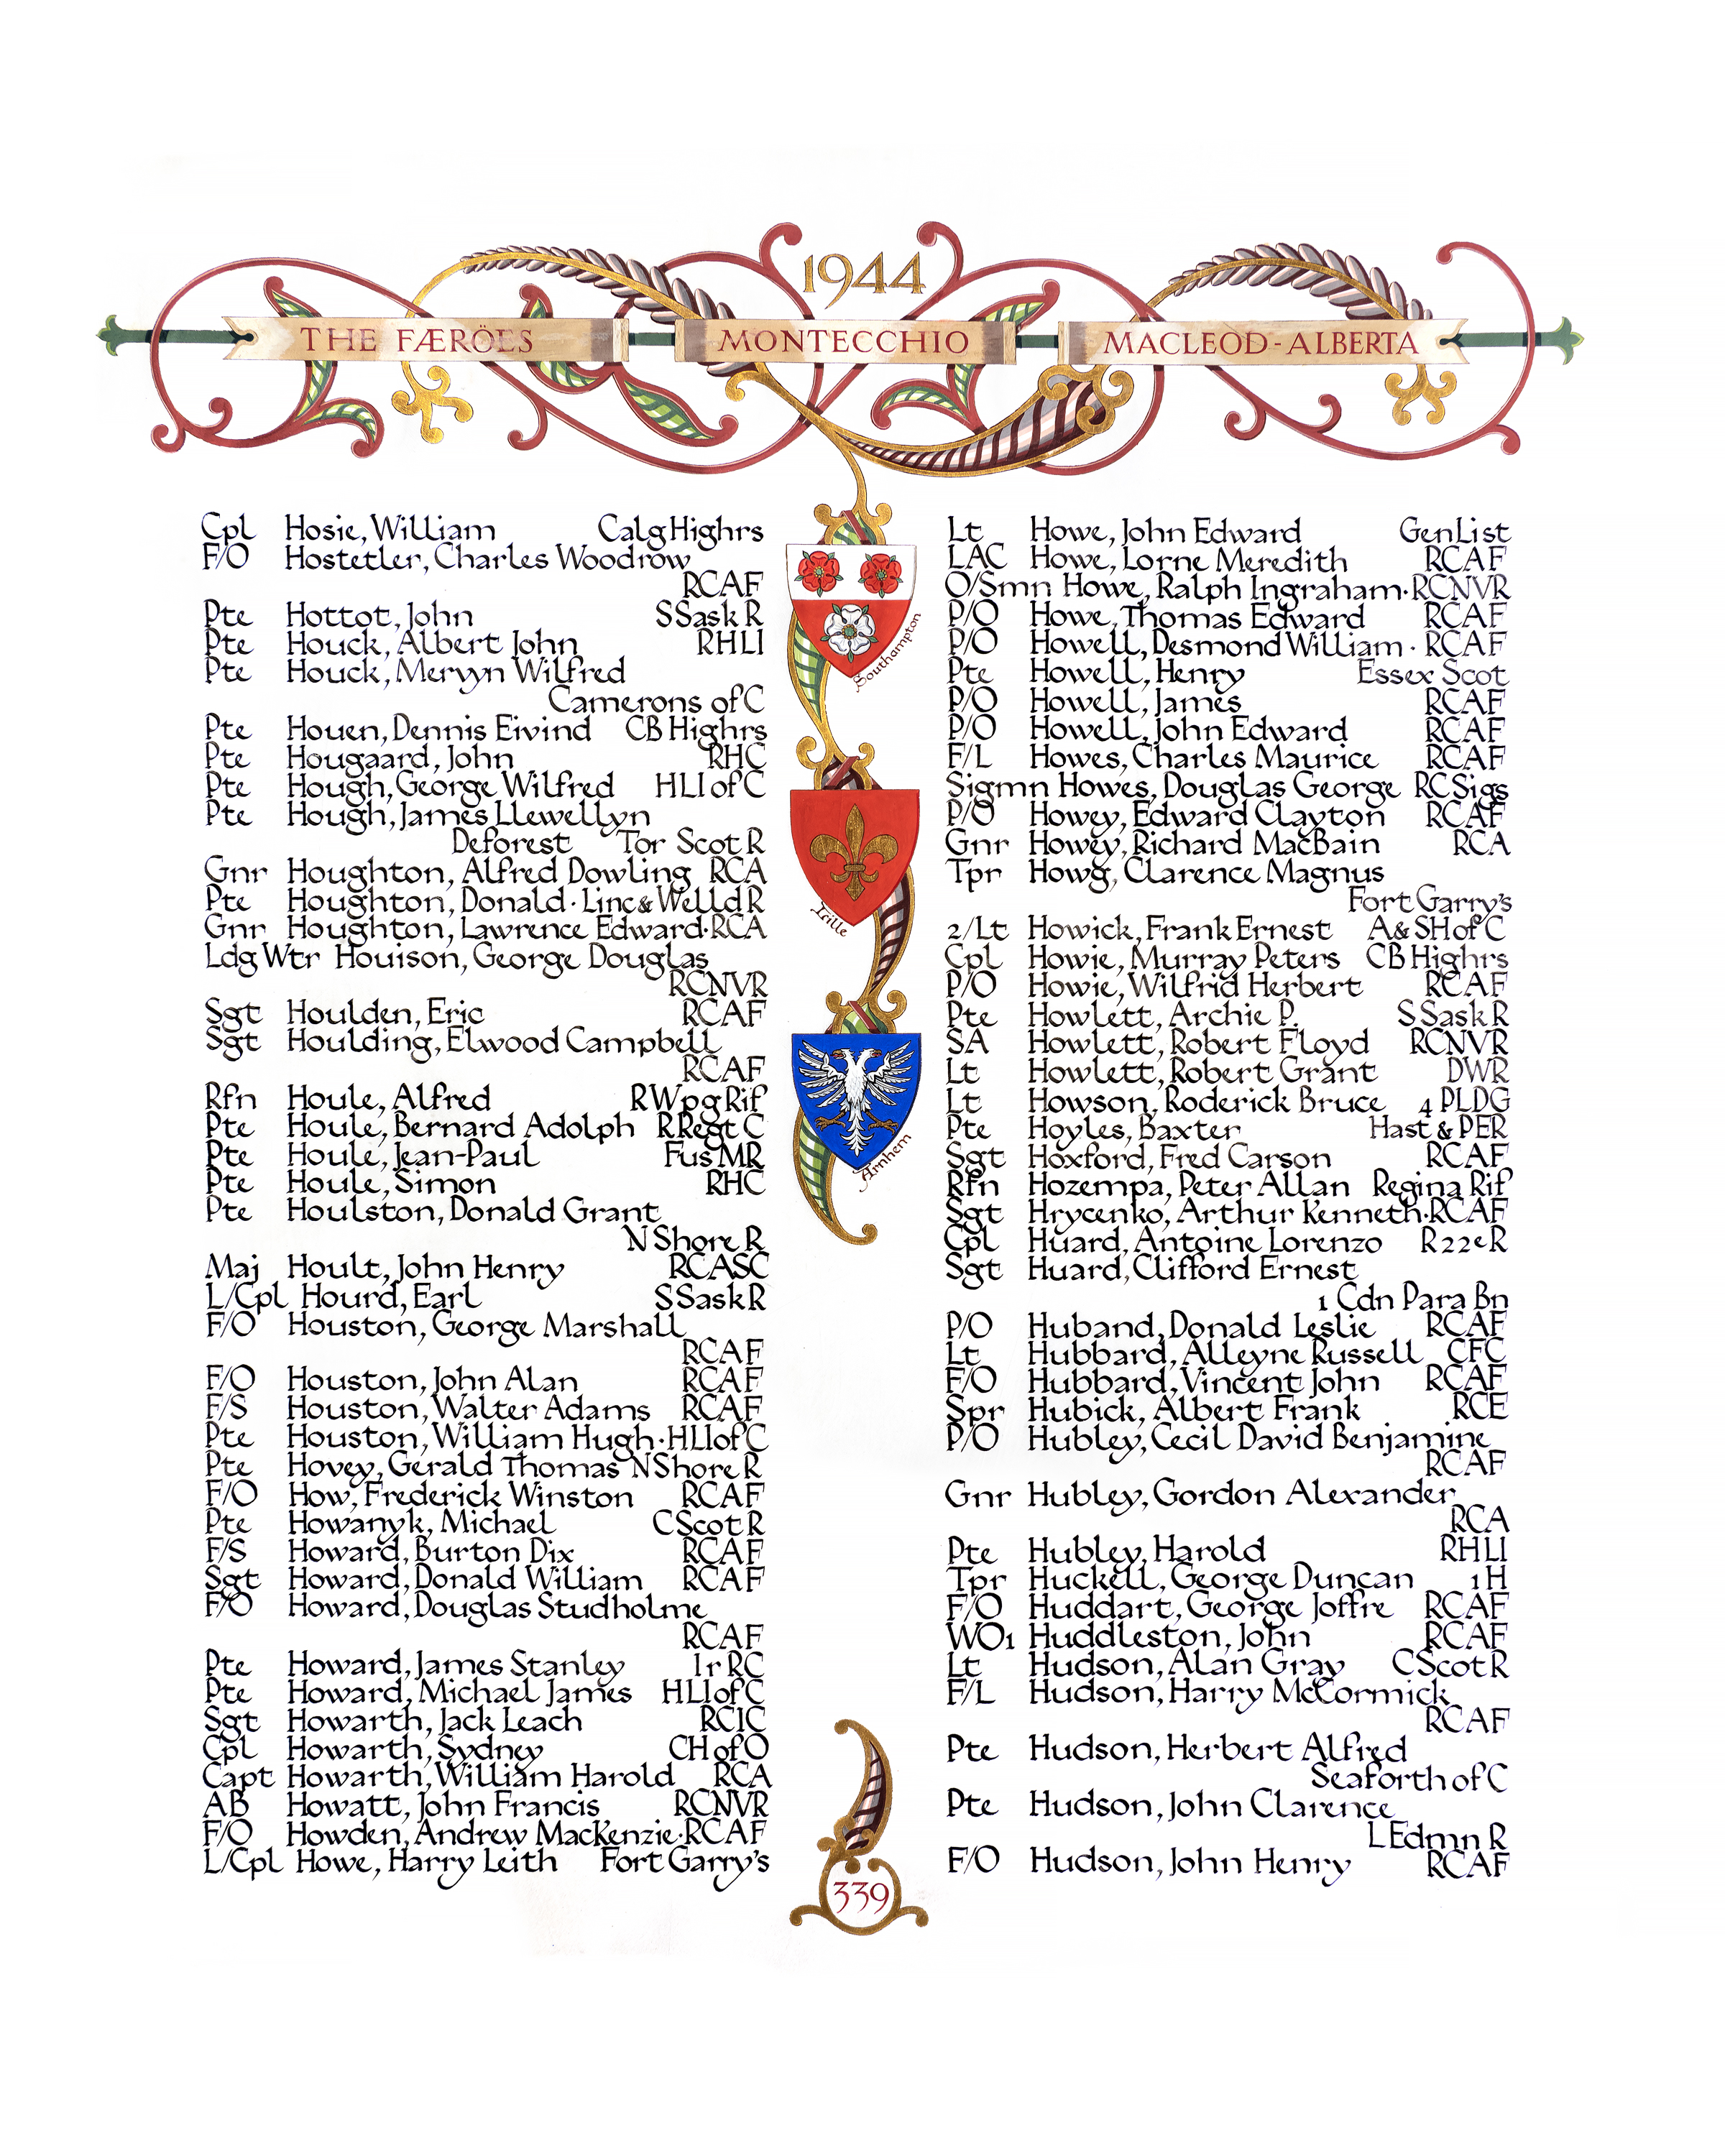 1944
THE FÆRÖES MONTECCHIO MACLEOD-ALBERTA
Cpl Hosie, William Calg Highrs
F/O Hostetler, Charles Woodrow
RCAF
Pte Hottot, John S Sask R
Pte Houck, Albert John RHLI
Pte Houck, Mervyn Wilfred
Camerons of C
Pte Houen, Dennis Eivind CB Highrs
Pte Hougaard, John RHC
Pte Hough, George Wilfred HLI of C
Pte Hough, James Llewellyn
Deforest Tor Scot R
Gnr Houghton, Alfred Dowling RCA
Pte Houghton, Donald · Linc & Welld R
Gnr Houghton, Lawrence Edward · RCA
Ldg Wtr Houison, George Douglas
RCNVR
Sgt Houlden, Eric RCAF
Sgt Houlding, Elwood Campbell
RCAF
Rfn Houle, Alfred R Wpg Rif
Pte Houle, Bernard Adolph R Regt C
Pte Houle, Jean-Paul Fus MR
Pte Houle, Simon RHC
Pte Houlston, Donald Grant
N Shore R
Maj Hoult, John Henry RCASC
L/Cpl Hourd, Earl S Sask R
F/O Houston, George Marshall
RCAF
F/O Houston, John Alan RCAF
F/S Houston, Walter Adams RCAF
Pte Houston, William Hugh · HLI of C
Pte Hovey, Gerald Thomas N Shore R
F/O How, Frederick Winston RCAF
Pte Howanyk, Michael C Scot R
F/S Howard, Burton Dix RCAF
Sgt Howard, Donald William RCAF
F/O Howard, Douglas Studholme
RCAF
Pte Howard, James Stanley Ir RC
Pte Howard, Michael James HLI of C
Sgt Howarth, Jack Leach RCIC
Cpl Howarth, Sydney CH of O
Capt Howarth, William Harold RCA
AB Howatt, John Francis RCNVR
F/O Howden, Andrew MacKenzie · RCAF
L/Cpl Howe, Harry Leith Fort Garry's
Southampton
Lille
Arnhem
Lt Howe, John Edward Gen List
LAC Howe, Lorne Meredith RCAF
O/Smn Howe, Ralph Ingraham · RCNVR
P/O Howe, Thomas Edward RCAF
P/O Howell, Desmond William · RCAF
Pte Howell, Henry Essex Scot
P/O Howell, James RCAF
P/O Howell, John Edward RCAF
F/L Howes, Charles Maurice RCAF
Sigmn Howes, Douglas George RC Sigs
P/O Howey, Edward Clayton RCAF
Gnr Howey, Richard MacBain RCA
Tpr Howg, Clarence Magnus
Fort Garry's
2/Lt Howick, Frank Ernest A & SH of C
Cpl Howie, Murray Peters CB Highrs
P/O Howie, Wilfrid Herbert RCAF
Pte Howlett, Archie P. S Sask R
SA Howlett, Robert Floyd RCNVR
Lt Howlett, Robert Grant DWR
Lt Howson, Roderick Bruce 4 PLDG
Pte Hoyles, Baxter Hast & PER
Sgt Hoxford, Fred Carson RCAF
Rfn Hozempa, Peter Allan Regina Rif
Sgt Hrycenko, Arthur Kenneth · RCAF
Cpl Huard, Antoine Lorenzo R22eR
Sgt Huard, Clifford Ernest
1 Cdn Para Bn
P/O Huband, Donald Leslie RCAF
Lt Hubbard, Alleyne Russell CFC
F/O Hubbard, Vincent John RCAF
Spr Hubick, Albert Frank RCE
P/O Hubley, Cecil David Benjamine
RCAF
Gnr Hubley, Gordon Alexander
RCA
Pte Hubley, Harold RHLI
Tpr Huckell, George Duncan 1 H
F/O Huddart, George Joffre RCAF
WO1 Huddleston, John RCAF
Lt Hudson, Alan Gray C Scot R
F/L Hudson, Harry McCormick
RCAF
Pte Hudson, Herbert Alfred
Seaforth of C
Pte Hudson, John Clarence
L Edmn R
F/O Hudson, John Henry RCAF
339